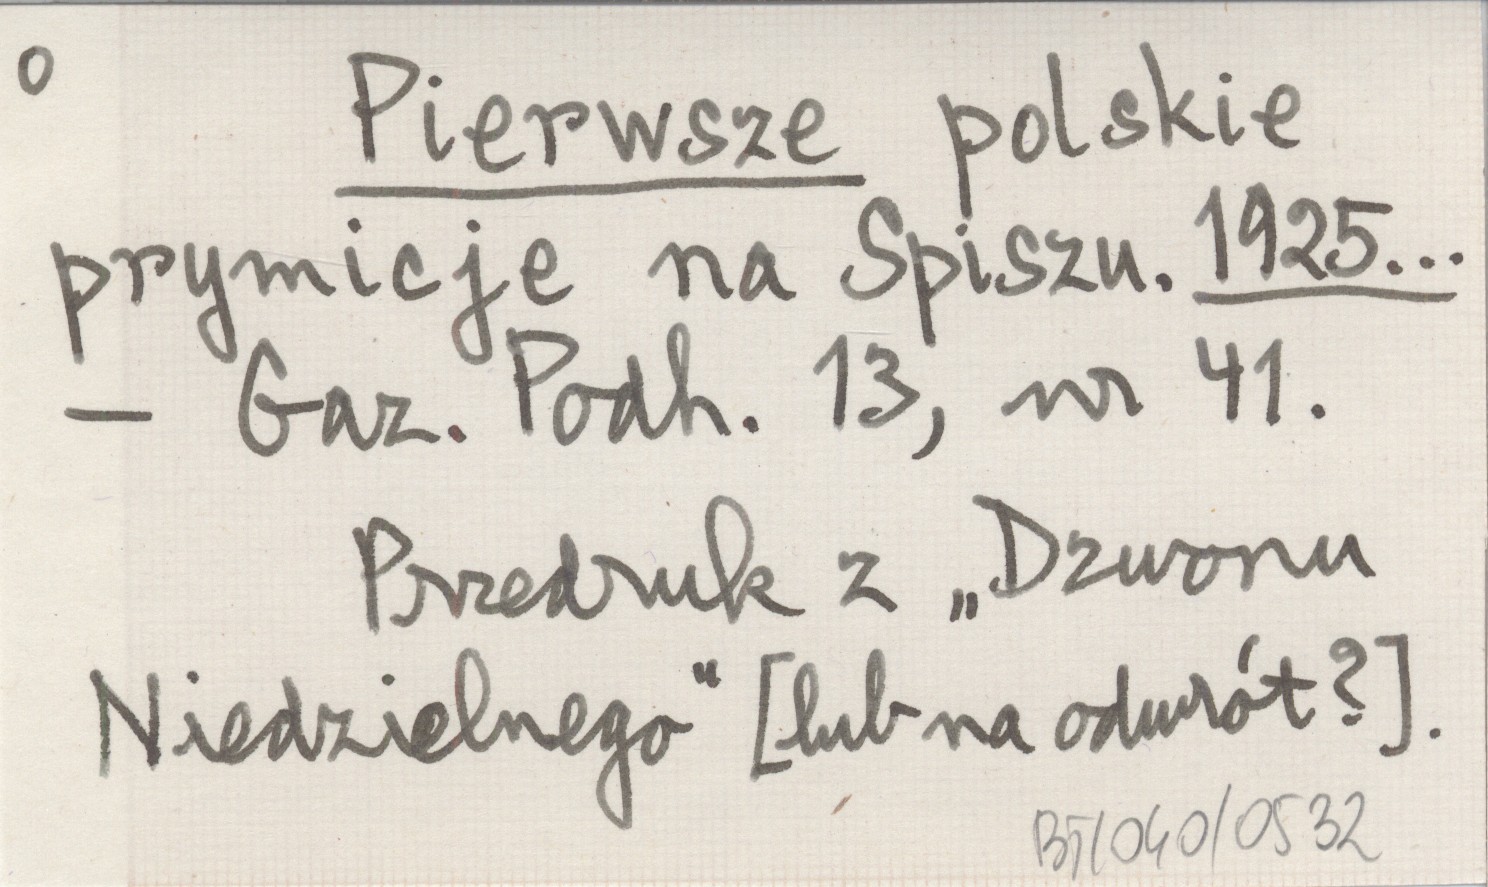 o
Pierwsze polskie
prymicje na Spiszu. 1925...
— Gaz. Podh. 13, nr 41.
Przedruk z „Dzwonu
Niedzielnego" [lub na odwrót?].
BT/040/0532